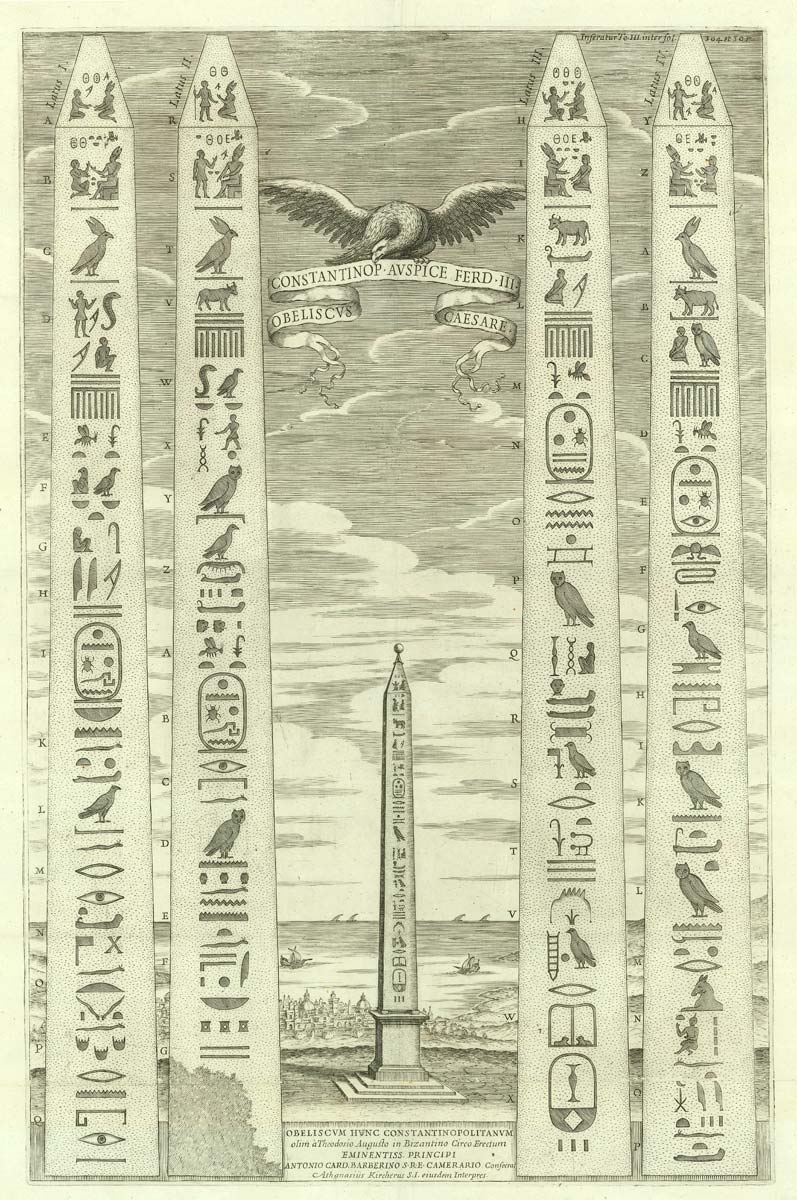 Inseratur To. III. inter fol. 304. et 305.
Latus I.
Latus II.
Latus III.
Latus IV.
CONSTANTINOP · AVSPICE FERD · III ·
OBELISCVS CAESARE ·
A
B
G
D
E
F
G
H
I
K
L
M
N
O
P
Q
R
S
T
V
W
X
Y
Z
A
B
C
D
E
F
G
H
I
K
L
M
N
O
P
Q
R
S
T
V
W
X
Y
Z
A
B
C
D
E
F
G
H
I
K
L
M
N
O
P
OBELISCVM HVNC CONSTANTINOPOLITANVM
olim à Theodosio Augusto in Bizantino Circo Erectum
EMINENTISS. PRINCIPI
ANTONIO CARD. BARBERINO · S · R · E · CAMERARIO Consecrat
Athanasius Kircherus S.I. eiusdem Interpres.